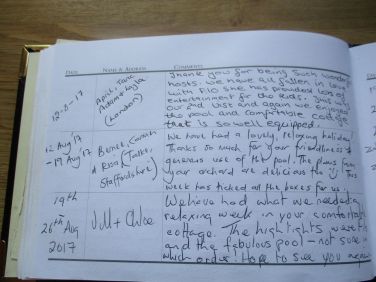 DATE NAME & ADDRESS COMMENTS
12-8-17
April, Tane
Adam + Kyla
(London)
Thank you for being such wonder
hosts. We have all fallen in love
with Flo. She has provided lots of
entertainment for the kids. This was
our 2nd visit and again we enjoyed
the pool and comfortable cottage
that is so well equipped.
12 Aug 17
- 19 Aug 17
Staffordshire)
We have had a lovely, relaxing holiday
Thanks so much for your friendliness &
generous use of the pool. The plums from
your orchard are delicious too This
week has ticked all the boxes for us!
19th
26th Aug
2017
Will + Chloe
We have had what we needed a
relaxing week in your comfortable
cottage. The highlights were
and the fabulous pool - not sure in
which order! Hope to see you again